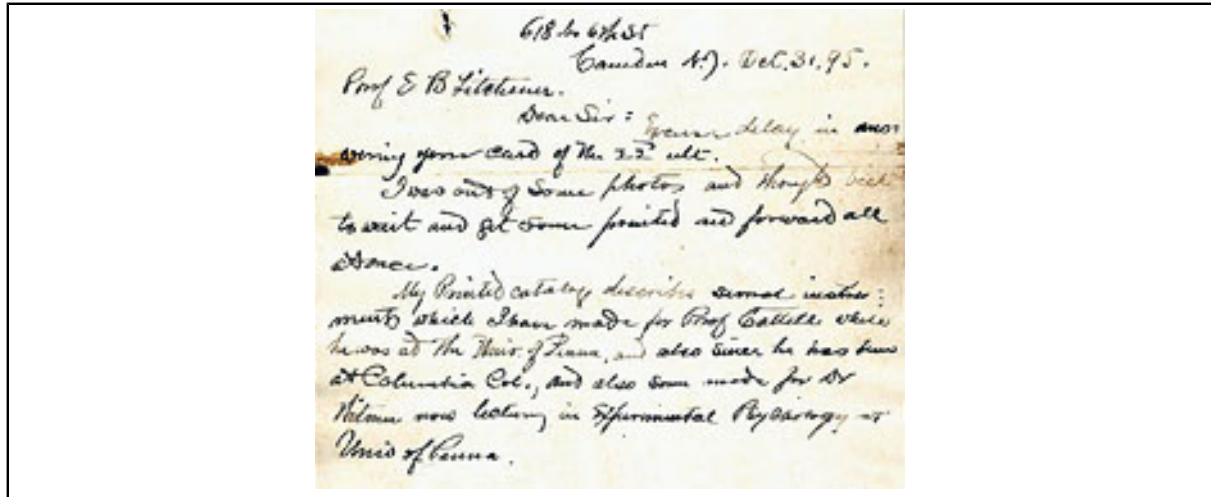 618 So 6th St
Camden N.J. Oct. 31. 95.
Prof E B Titchener.
Dear Sir: Excuse delay in answ
ering your card of the 22d ult.
I was out of some photos and thought best
to wait and get some printed and forward all
at once.
My Printed catalog describes several instru:
ments which I have made for Prof Cattell while
he was at the Univ. of Penna, and also since he has been
at Columbia Col., and also some made for Dr
Witmer now lecturing in Experimental Psychology at
Univ of Penna.